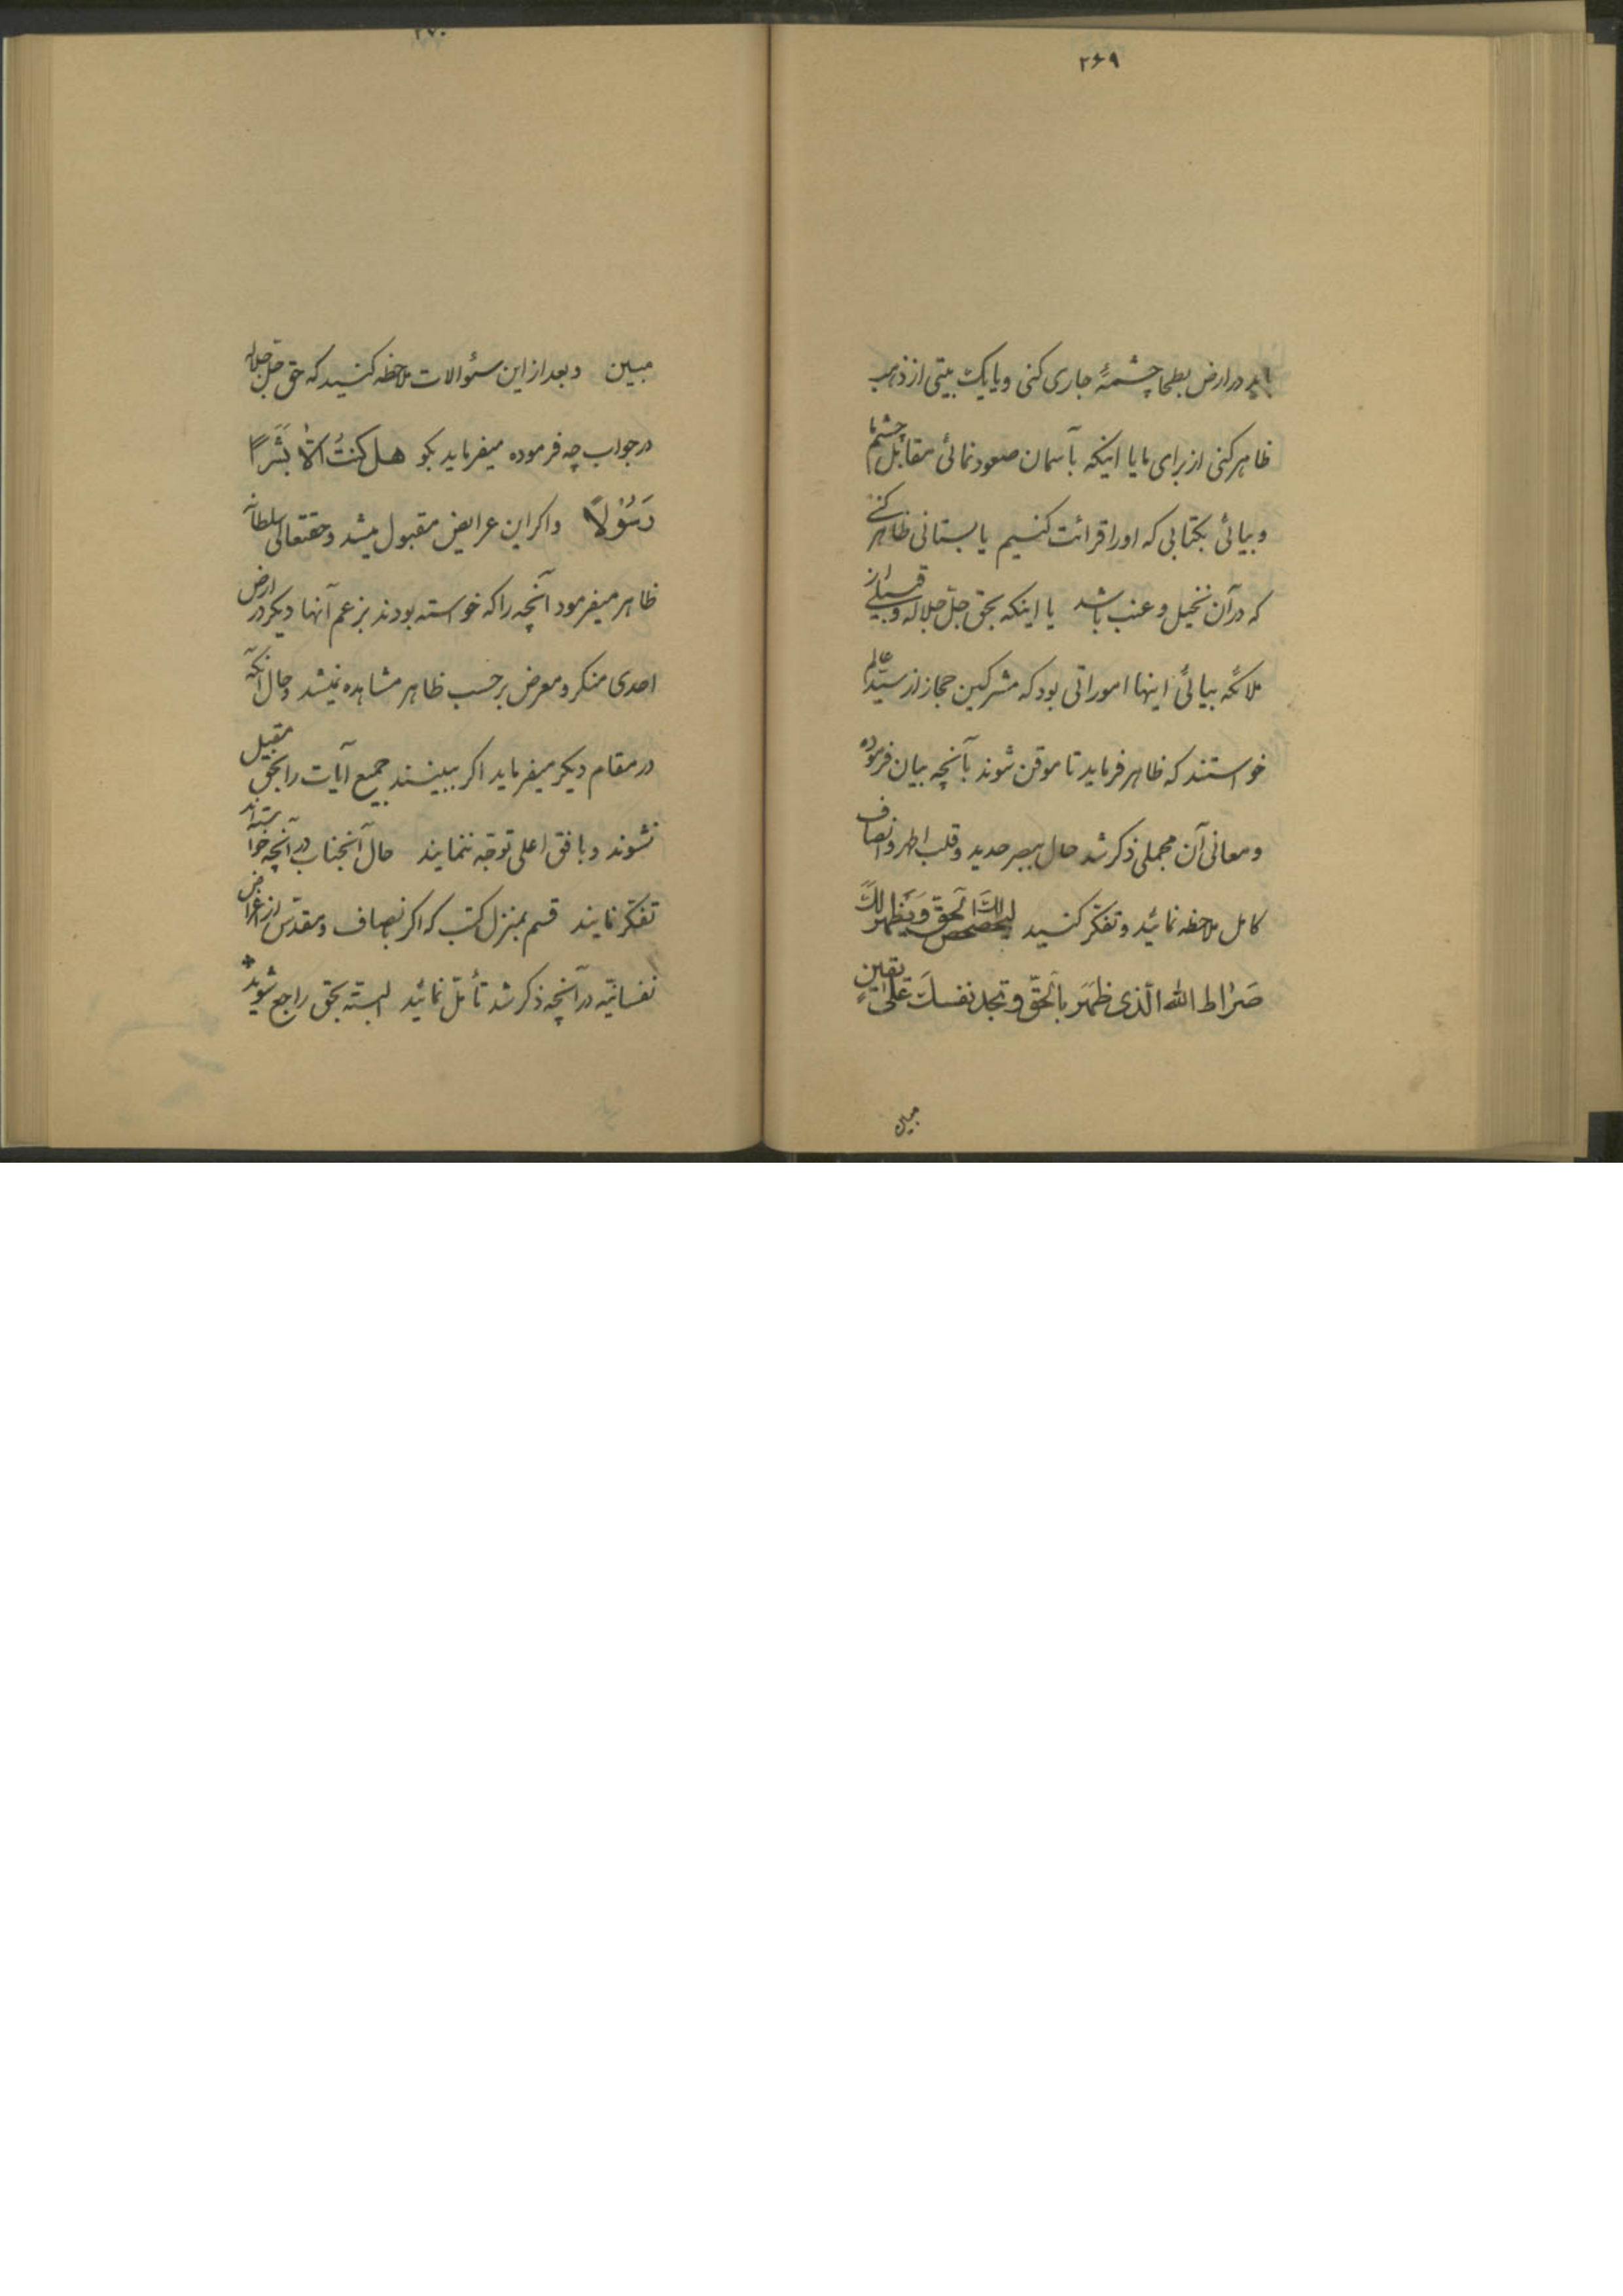 ۲۶۹
باید در ارض بطحا چشمهٔ جاری کنی و یا یک بیتی از ذهب
ظاهر کنی از برای ما یا اینکه بآسمان صعود نمائی مقابل چشم ما
و بیائی بکتابی که او را قرائت کنیم یا بستانی ظاهر کنی
که در آن نخیل و عنب باشد یا اینکه بحق جلّ جلاله و قبیلی از
ملائکه بیائی اینها اموراتی بود که مشرکین حجاز از سیّد عالم
خواستند که ظاهر فرماید تا موقن شوند بآنچه بیان فرموده
و معانی آن مجملی ذکر شد حال ببصر حدید و قلب اطهر و انصاف
کامل ملاحظه نمائید و تفکّر کنید لیحصحص لک الحقّ و یظهر لک
صراط الله الّذی ظهر بالحقّ و تجد نفسک علی یقین
مبین
۲۷۰
مبین و بعد از این سئوالات ملاحظه کنید که حق جلّ جلاله
در جواب چه فرموده میفرماید بکو هل کنتُ الّا بَشَراً
رَسُولاً و اکر این عرایض مقبول میشد و حقتعالی سلطانه
ظاهر میفرمود آنچه را که خواسته بودند بزعم آنها دیکر در ارض
احدی منکر و معرض بر حسب ظاهر مشاهده نمیشد و حال آنکه
در مقام دیکر میفرماید اکر ببینند جمیع آیات را بحق مقبل
نشوند و بافق اعلی توجّه ننمایند حال آنجناب در آنچه خواسته‌اند
تفکّر نمایند قسم بمنزل کتب که اکر بانصاف و مقدّس از اغراض
نفسانیّه در آنچه ذکر شد تأمّل نمائید البتّه بحق راجع شوید